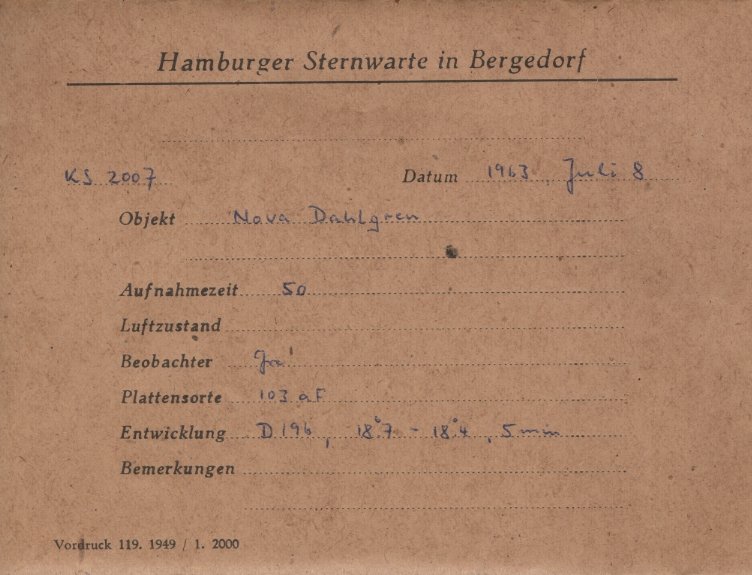 Hamburger Sternwarte in Bergedorf
KS 2007 Datum 1963, Juli 8
Objekt Nova Dahlgren
Aufnahmezeit 50
Luftzustand
Beobachter
Plattensorte 103 aF
Entwicklung D 196, 18°7 - 18°4, 5 min
Bemerkungen
Vordruck 119. 1949 / 1. 2000